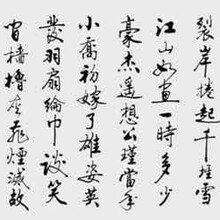 裂岸捲起千堆雪
江山如畫一時多少
豪杰遙想公瑾當年
小喬初嫁了雄姿英
發羽扇綸巾談笑
間檣櫓灰飛煙滅故